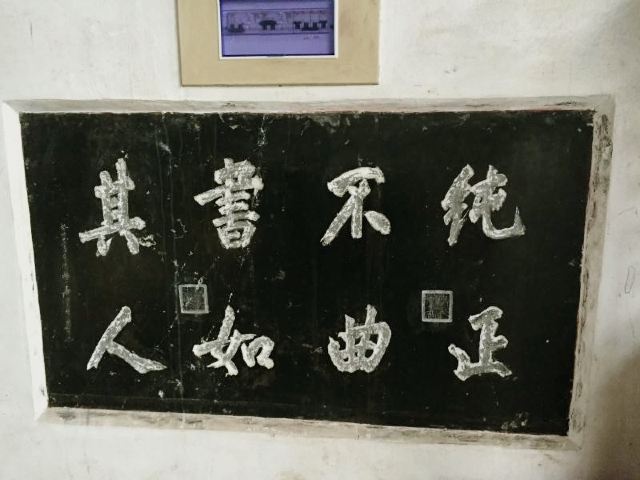 纯正
不曲
書如
其人